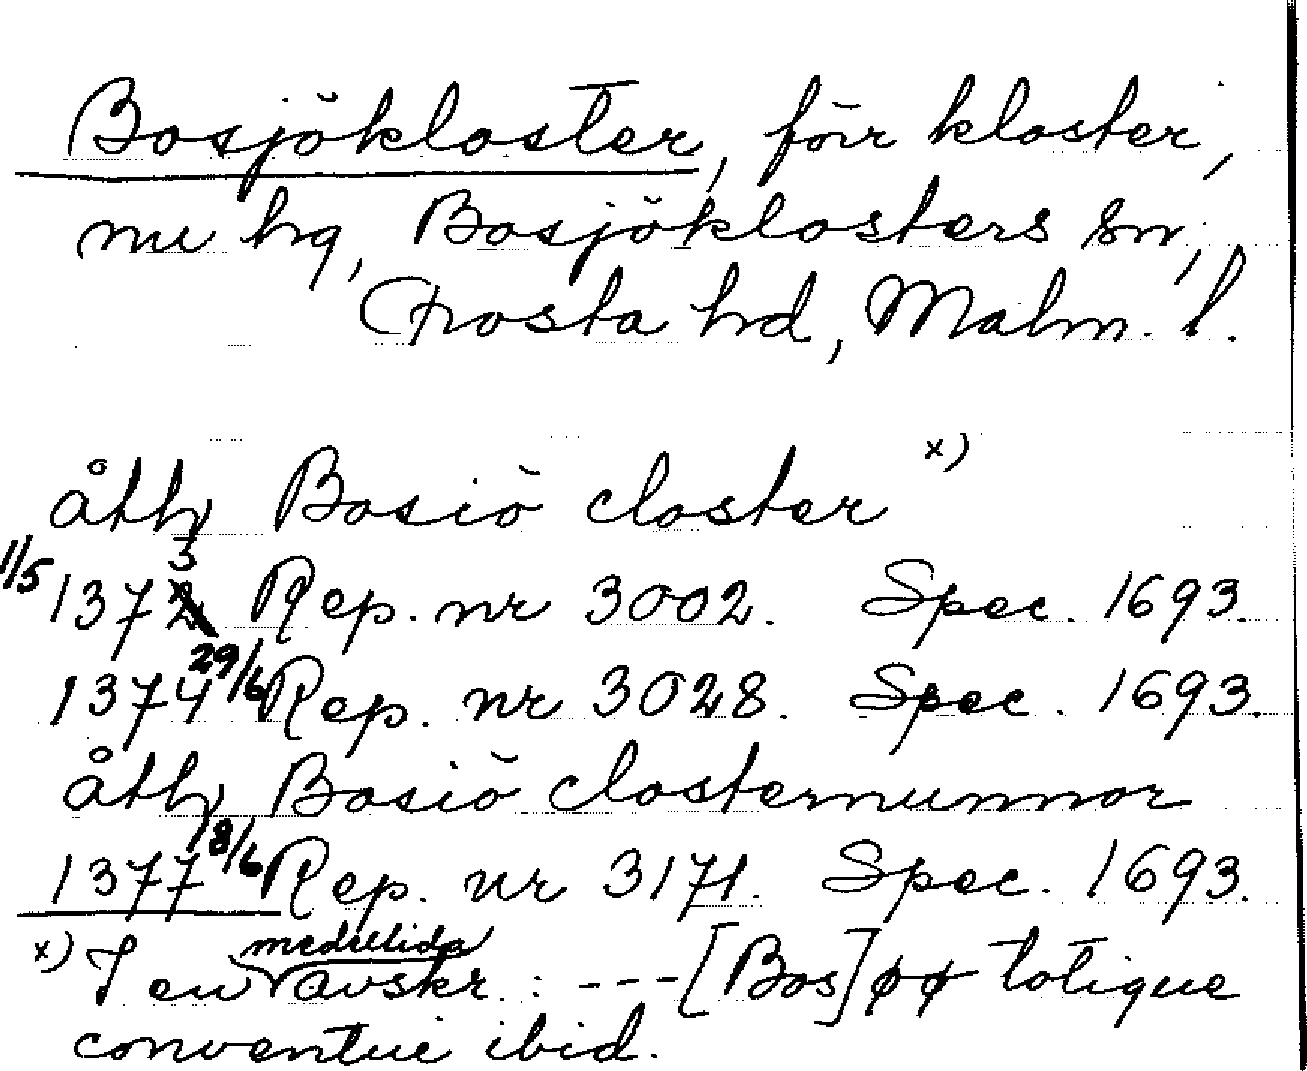 Bosjökloster, förr kloster,
nu hg, Bosjöklosters sn,
Frosta hd, Malm. l.
åth Bosiö closter x)
1/5 1373 Rep. nr 3002. Spec. 1693.
1374 29/6 Rep. nr 3028. Spec. 1693.
åth Bosiö closternunnor
1377 8/6 Rep. nr 3171. Spec. 1693.
x) I en medeltida avskr. : ---[Bos]øø totique
conventui ibid.